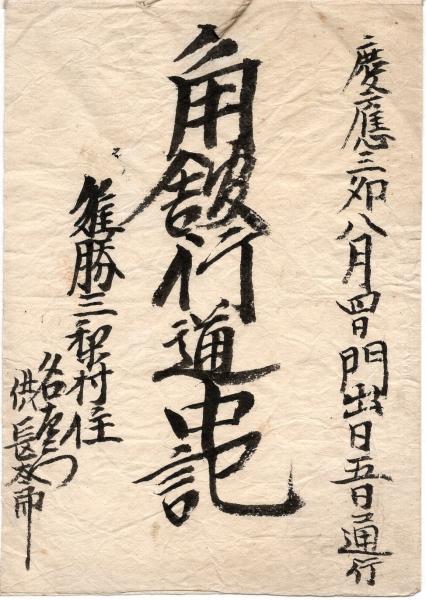 慶應三卯八月四日門出日五日通行
角館行道中記
雄勝三梨村住
供長太郎